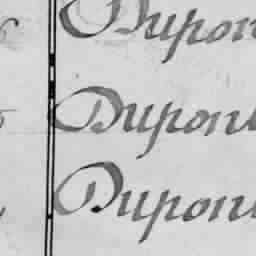 Dupon
Dupont
Dupont